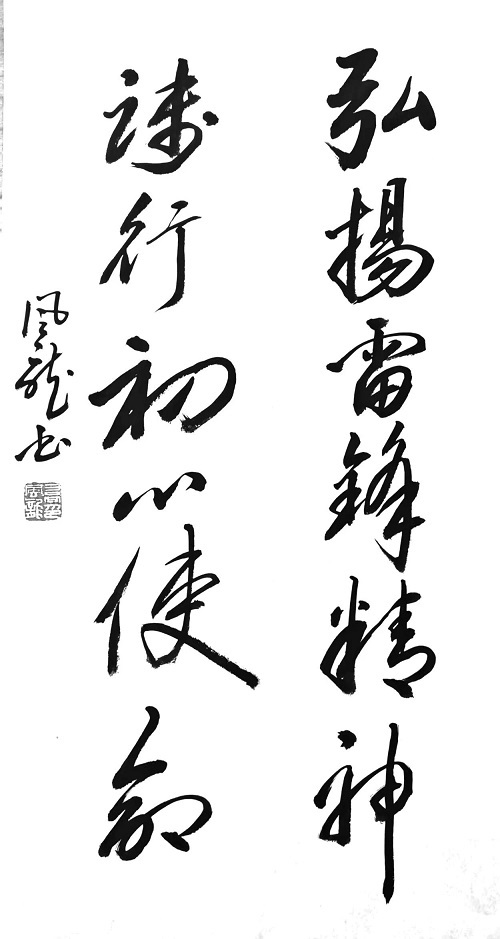 弘揚雷鋒精神
践行初心使命
風龍书